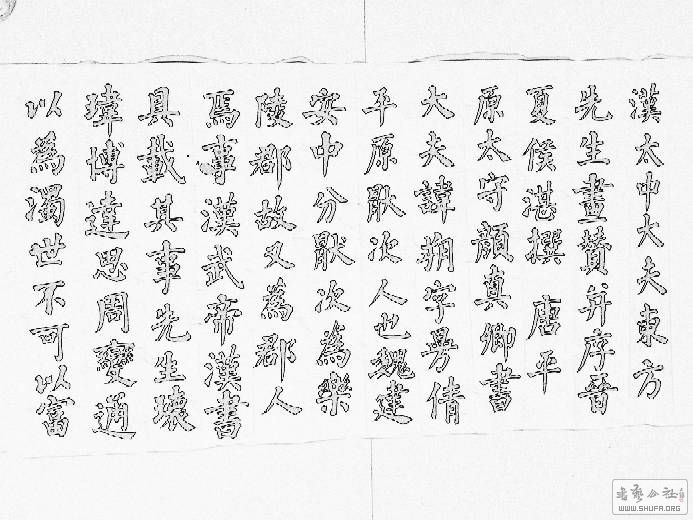 漢太中大夫東方
先生畫贊并序晉
夏侯湛撰 唐平
原太守顏真卿書
大夫諱朔字曼倩
平原猒次人也魏建
安中分猒次為樂
陵郡故又為郡人
焉事漢武帝漢書
具載其事先生瓌
瑋博達思周變通
以為濁世不可以富
书艺公社
WWW.SHUFA.ORG